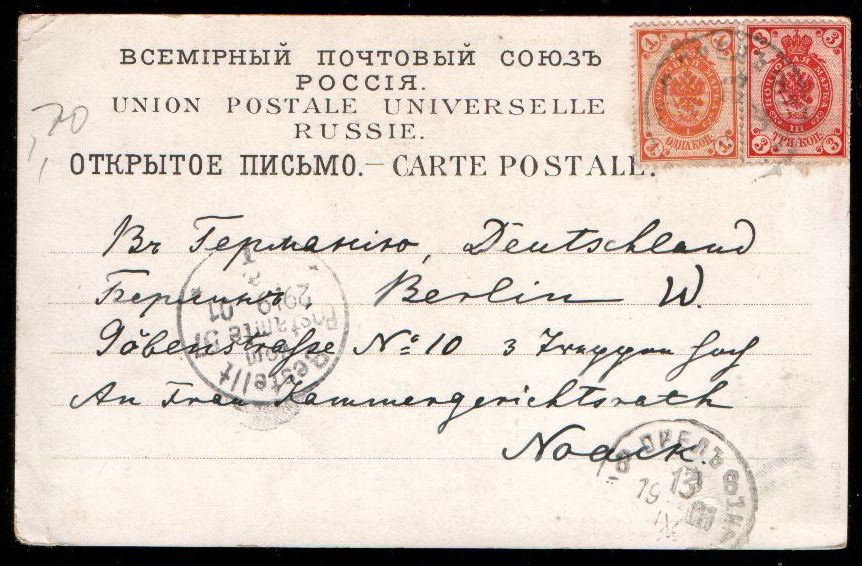 ВСЕМІРНЫЙ ПОЧТОВЫЙ СОЮЗЪ
РОССІЯ.
UNION POSTALE UNIVERSELLE
RUSSIE.
ОТКРЫТОЕ ПИСЬМО.— CARTE POSTALE.
1 1
1 ОДНА КОП. 1
3 ПОЧТОВАЯ МАРКА 3
3 ТРИ КОП. 3
70
Въ Германію, Deutschland
Берлинъ Berlin W.
Göbenstraße No 10 3 Treppen hoch
An Frau Kammergerichtsrath
Noack.
Bestellt
vom
Postamte 57
29/9 01
13
19
IX